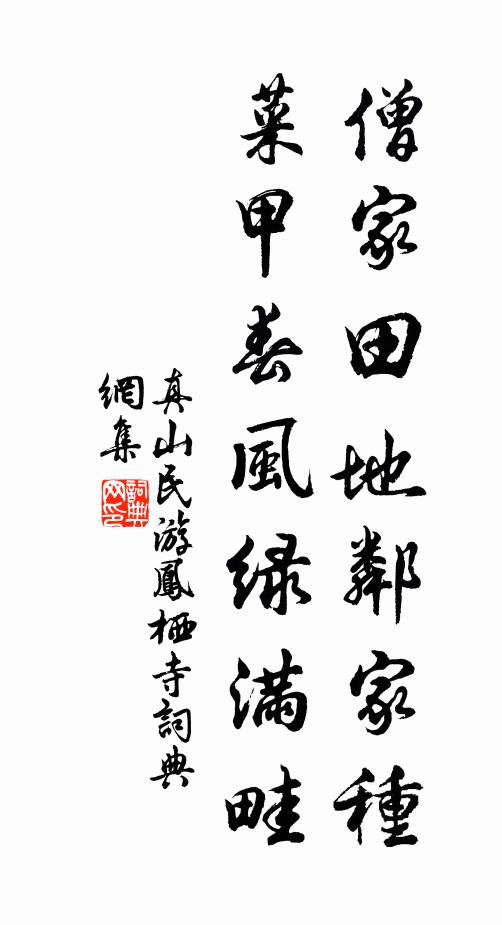 僧家田地鄰家種
菜甲春風緑滿畦
真山民游鳳栖寺詞典
網集
詞典网印